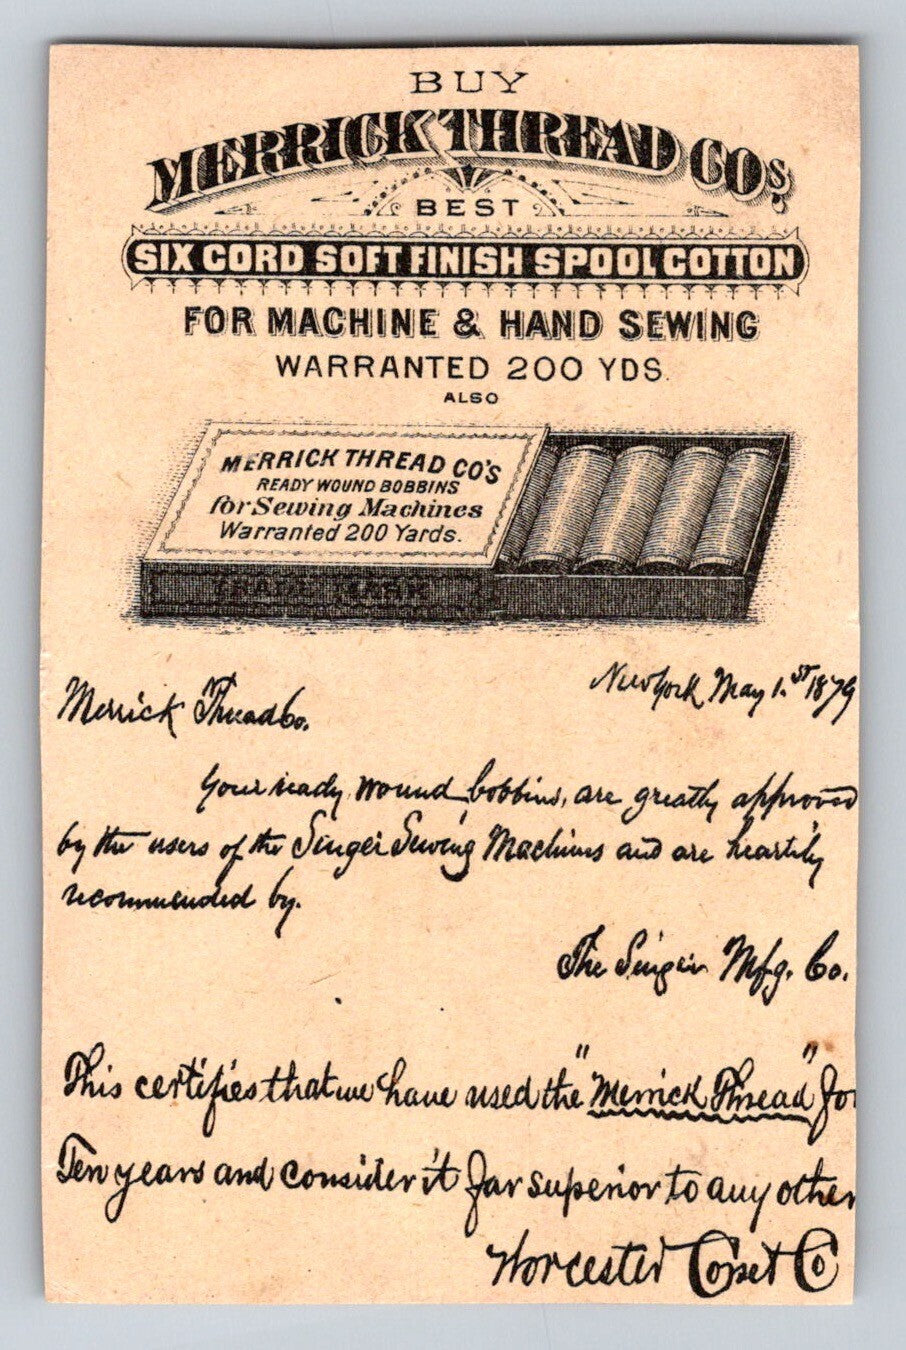 BUY
MERRICK THREAD COS.
BEST
SIX CORD SOFT FINISH SPOOL COTTON
FOR MACHINE & HAND SEWING
WARRANTED 200 YDS.
ALSO
MERRICK THREAD CO'S
READY WOUND BOBBINS
for Sewing Machines
Warranted 200 Yards.
TRADE MARK
New York May 1.st 1879
Merrick Thread Co.
Your ready wound bobbins, are greatly approved
by the users of the Singer Sewing Machines and are heartily
recommended by.
The Singer Mfg. Co.
This certifies that we have used the "Merrick Thread" for
Ten years and consider it far superior to any other
Worcester Corset Co